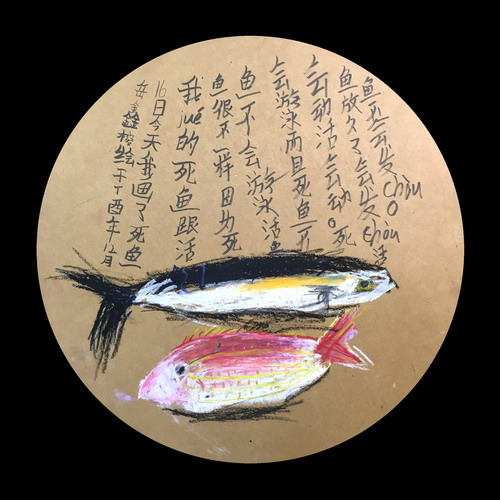 鑫榕绘于丁酉年12月
16日今天我画了死鱼
我jué的死鱼跟活
鱼很不一样因为死
鱼不会游泳活鱼
会游泳而且死鱼不
会动活鱼会动。死
鱼放久了会发chòu活
鱼不会发chòu。